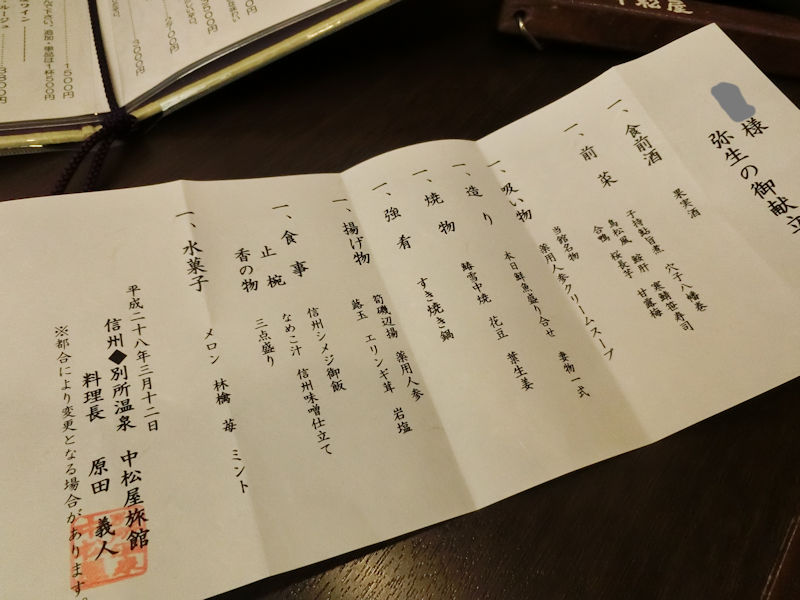 様
弥生の御献立
一、食前酒
果実酒
一、前菜
子持鮎旨煮 穴子八幡巻
鳥松風 鮟肝 寒鯖笹寿司
合鴨 桜長芋 甘露梅
一、吸い物
当館名物
薬用人参クリームスープ
一、造り
本日鮮魚盛り合せ 妻物一式
一、焼物
鰆雪中焼 花豆 葉生姜
一、強肴
すき焼き鍋
一、揚げ物
筍磯辺揚 薬用人参
蕗玉 エリンギ茸 岩塩
一、食事
信州シメジ御飯
止椀
なめこ汁 信州味噌仕立て
香の物
三点盛り
一、水菓子
メロン 林檎 苺 ミント
平成二十八年三月十二日
信州◆別所温泉 中松屋旅館
料理長 原田 義人
※都合により変更となる場合があります。
ワイン
追加・単品は1杯500円
1500円
中松屋